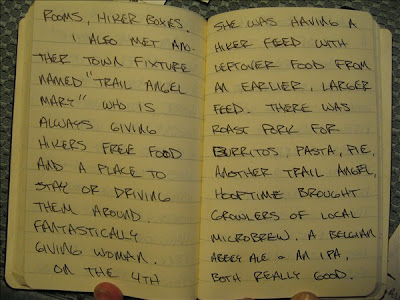 ROOMS, HIKER BOXES.
I ALSO MET AN-
THER TOWN FIXTURE
NAMED "TRAIL ANGEL
MARY" WHO IS
ALWAYS GIVING
HIKERS FREE FOOD
AND A PLACE TO
STAY OR DRIVING
THEM AROUND.
FANTASTICALLY
GIVING WOMAN.
ON THE 4TH
SHE WAS HAVING A
HIKER FEED WITH
LEFTOVER FOOD FROM
AN EARLIER, LARGER
FEED. THERE WAS
ROAST PORK FOR
BURRITOS, PASTA, PIE.
ANOTHER TRAIL ANGEL,
HOOPTIME BROUGHT
GROWLERS OF LOCAL
MICROBREW. A BELGIAN
ABBEY ALE & AN IPA,
BOTH REALLY GOOD.